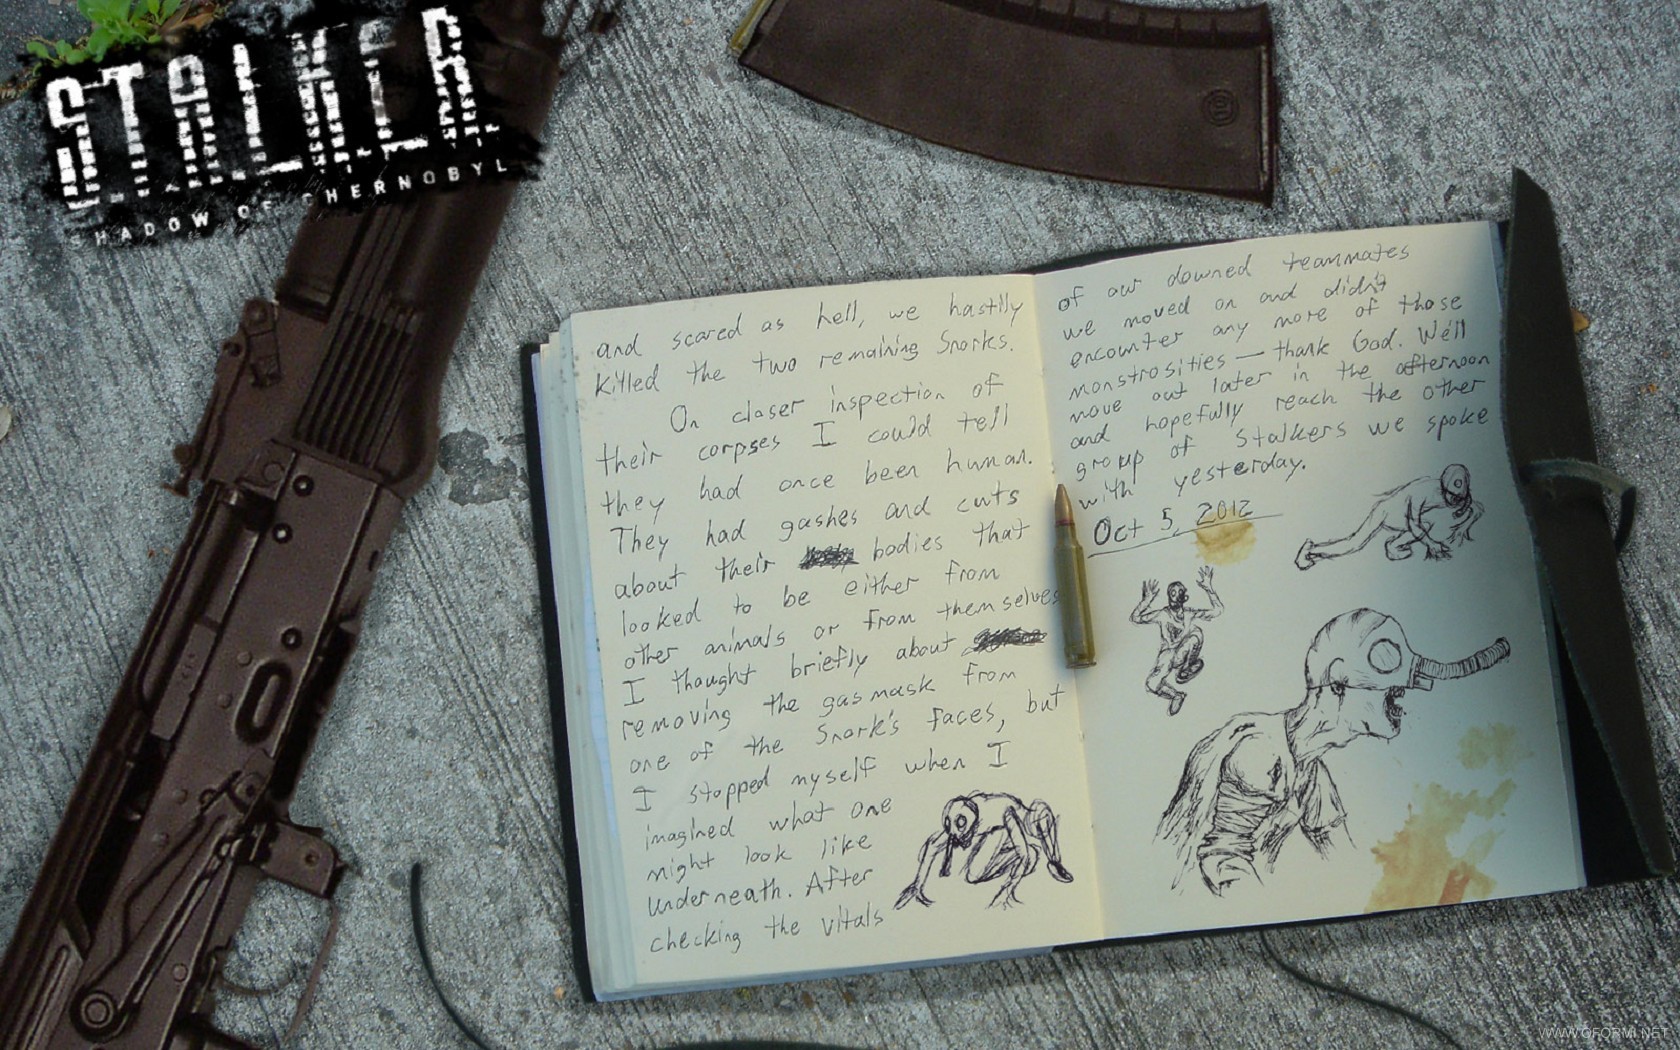 S.T.A.L.K.E.R
SHADOW OF CHERNOBYL
and scared as hell, we hastily
killed the two remaining Snorks.
On closer inspection of
their corpses I could tell
they had once been human.
They had gashes and cuts
about their bodies that
looked to be either from
other animals or from themselves
I thought briefly about
removing the gasmask from
one of the Snork's faces, but
I stopped myself when I
imagined what one
might look like
underneath. After
checking the vitals
of our downed teammates
we moved on and didn't
encounter any more of those
monstrosities — thank God. We'll
move out later in the afternoon
and hopefully reach the other
group of Stalkers we spoke
with yesterday.
Oct 5, 2012
WWW.OFORMI.NET